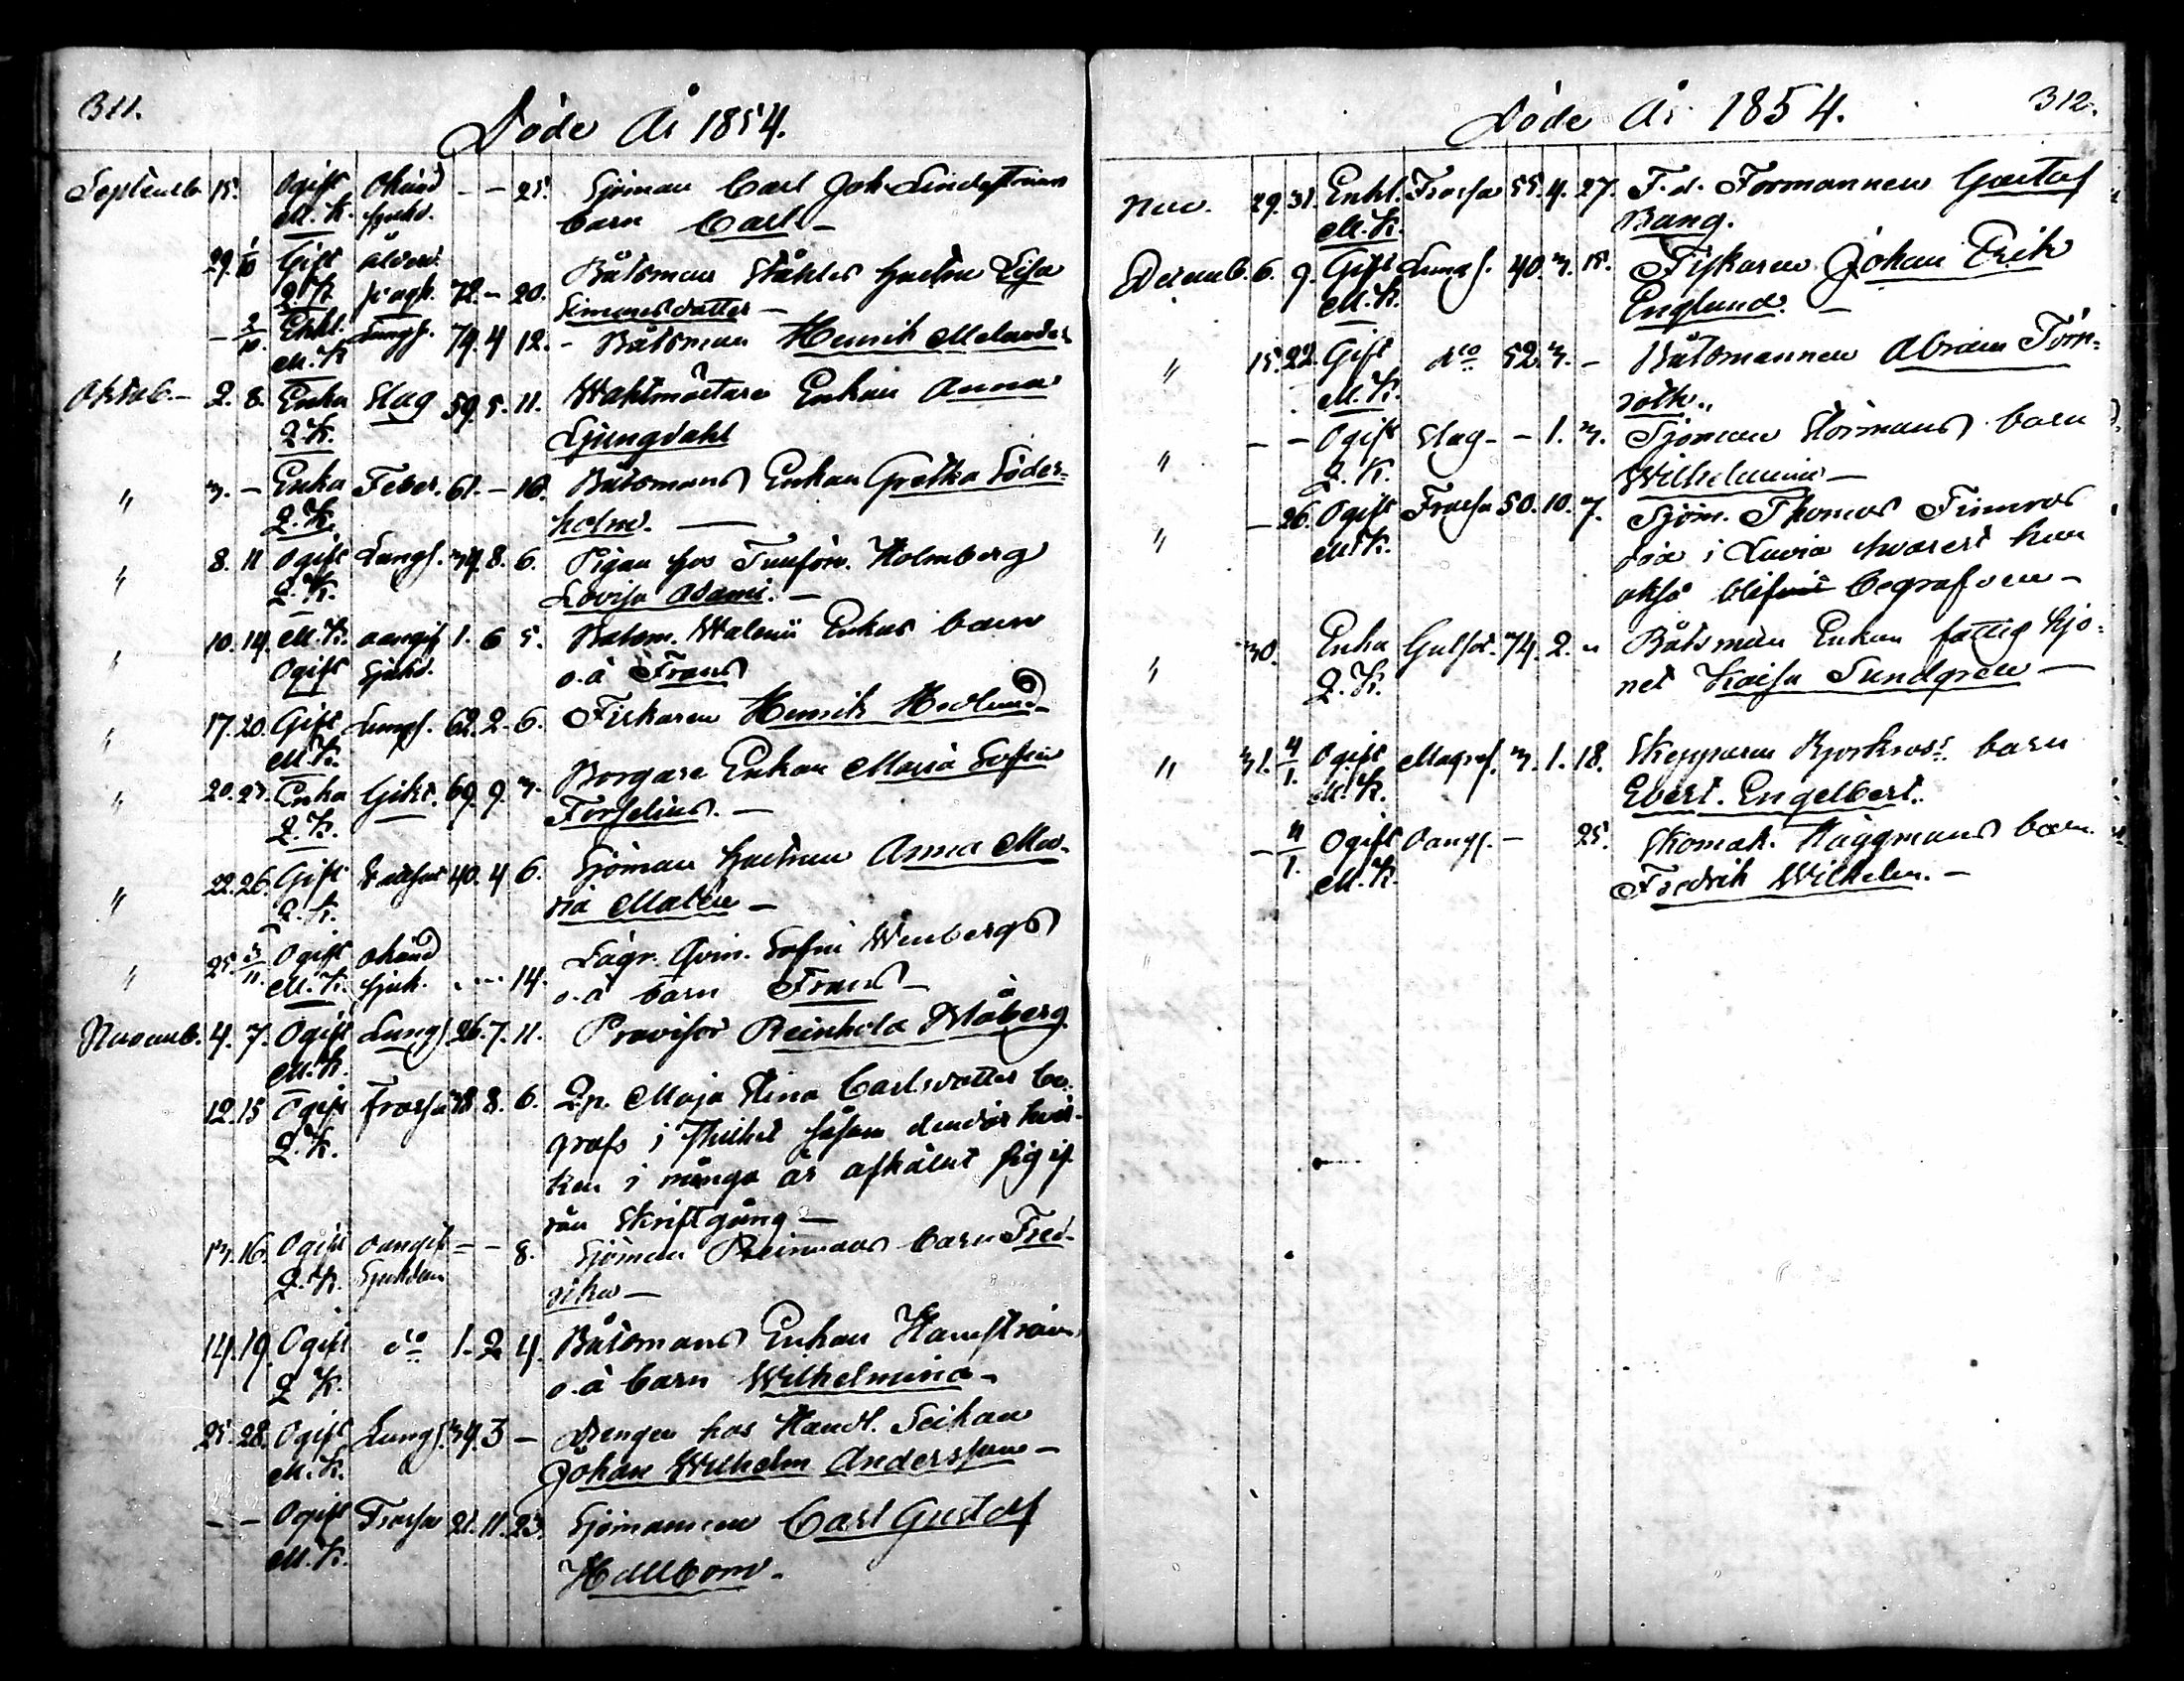 311.
Döde År 1854.
Septemb. 15. Ogift Okänd - - 25. Sjöman Carl Joh. Lindström
M. K. sjukd. barn Carl -
29. 1/10 Gift ålderd. Båtsman Ståhles hustru Lisa
Q. K. 72. - 20. Simonsdotter -
- 2/10. Enkl. Lungs. 79. 4 12. - Båtsman Henrik Melander
M. K.
Oktob. - 2. 8. Enka Slag 59. 5. 11. Waktmästare Enkan Anna
Q. K. Ljungdahl
" 3. - Enka Feber. 61. - 16. Båtsmans Enkan Gretha Söder-
Q. K. holm. -
" 8. 11 Ogift Lungs. 34. 8. 6. Pigan hos Holmberg
Q. K. Lovisa Adami. -
" 10. 14. M. K. oangif 1. 6 5. Båtsm. Enkas barn
Ogift sjukd. o. ä Frans
" 17. 20. Gift Lungs. 62. 2. 6. Fiskaren Henrik Hedlund
M. K.
" 20. 23. Enka Gikt. 69. 9. 3. Borgare Enkan Maria Sofia
Q. K. Forselius. -
" 22. 26. Gift 40. 4 6. Sjöman hustrun Anna Ma-
Q. K. ria Malén -
" 25. 3/11. Ogift okänd Sofia Wenbergs
M. K. sjuk. - - 14. o. ä barn Frans -
Novemb. 4. 7. Ogift Lungs. 26. 7. 11. Provisor Reinhold Moberg
M. K.
12. 15 Ogift Frossa 38. 8. 6. Qp. Maja Stina Carlsdotter be-
Q. K. grafs i såsom
ken i många år afhållit sig if
rån Skriftgång -
13. 16. Ogift oangif - - 8. Sjöman Reimans barn Fred-
Q. K. Sjukdom rika -
14. 19. Ogift do 1. 2 4. Båtsmans Enkan Hamström
Q K. o. ä barn Wilhelmina -
25. 28. Ogift Lungs. 34. 3 - Drengen hos Handl. Seikan
M. K. Johan Wilhelm Andersson -
- - Ogift Frossa 21. 11. 23. Sjömannen Carl Gustaf
M. K. Hellbom. -
312.
Döde År 1854.
Nov. 29. 31. Enkl. Frossa 55. 4. 27. F. d. Formannen Gustaf
M. K. Bang.
Decemb. 6. 9. Gift Lungs. 40. 3. 15. Fiskaren Johan Erik
M. K. Englund. -
" 15. 22. Gift do 52. 3. - Båtsmannen Abram Törn-
M. K. roth.
" - - Ogift Slag - - 1. 3. Sjöman Störmans barn
Q. K. Wilhelmina -
" - 26. Ogift Frossa 50. 10. 7. Sjöm. Thomas Finnros
M. K. i Luvia hvarest han
också begrafven -
" 30. Enka Gulsot. 74. 2. " Båtsman Enkan fattig hjo-
Q. K. net Kaisa Sundgren -
" 31. 4/1. Ogift Magref. 3. 1. 18. Skepparen Björkross barn
M. K. Evert. Engelbert.
- 4/1. Ogift Oangs. - 25. Skomak. Häggmans barn
M. K. Fredrik Wilhelm. -